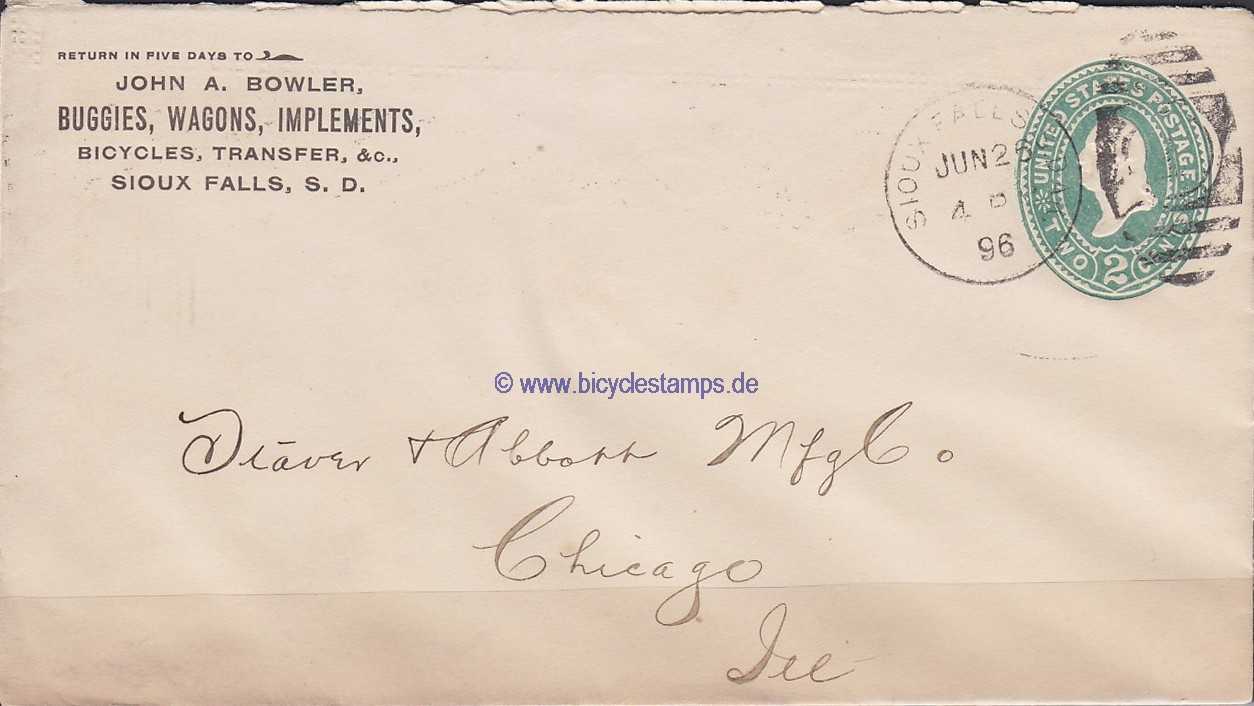 RETURN IN FIVE DAYS TO
JOHN A. BOWLER,
BUGGIES, WAGONS, IMPLEMENTS,
BICYCLES, TRANSFER, &C.,
SIOUX FALLS, S. D.
SIOUX FALLS
JUN
4
96
UNITED STATES POSTAGE
TWO 2 CENTS
© www.bicyclestamps.de
& Abbott Mfg Co
Chicago
Ill